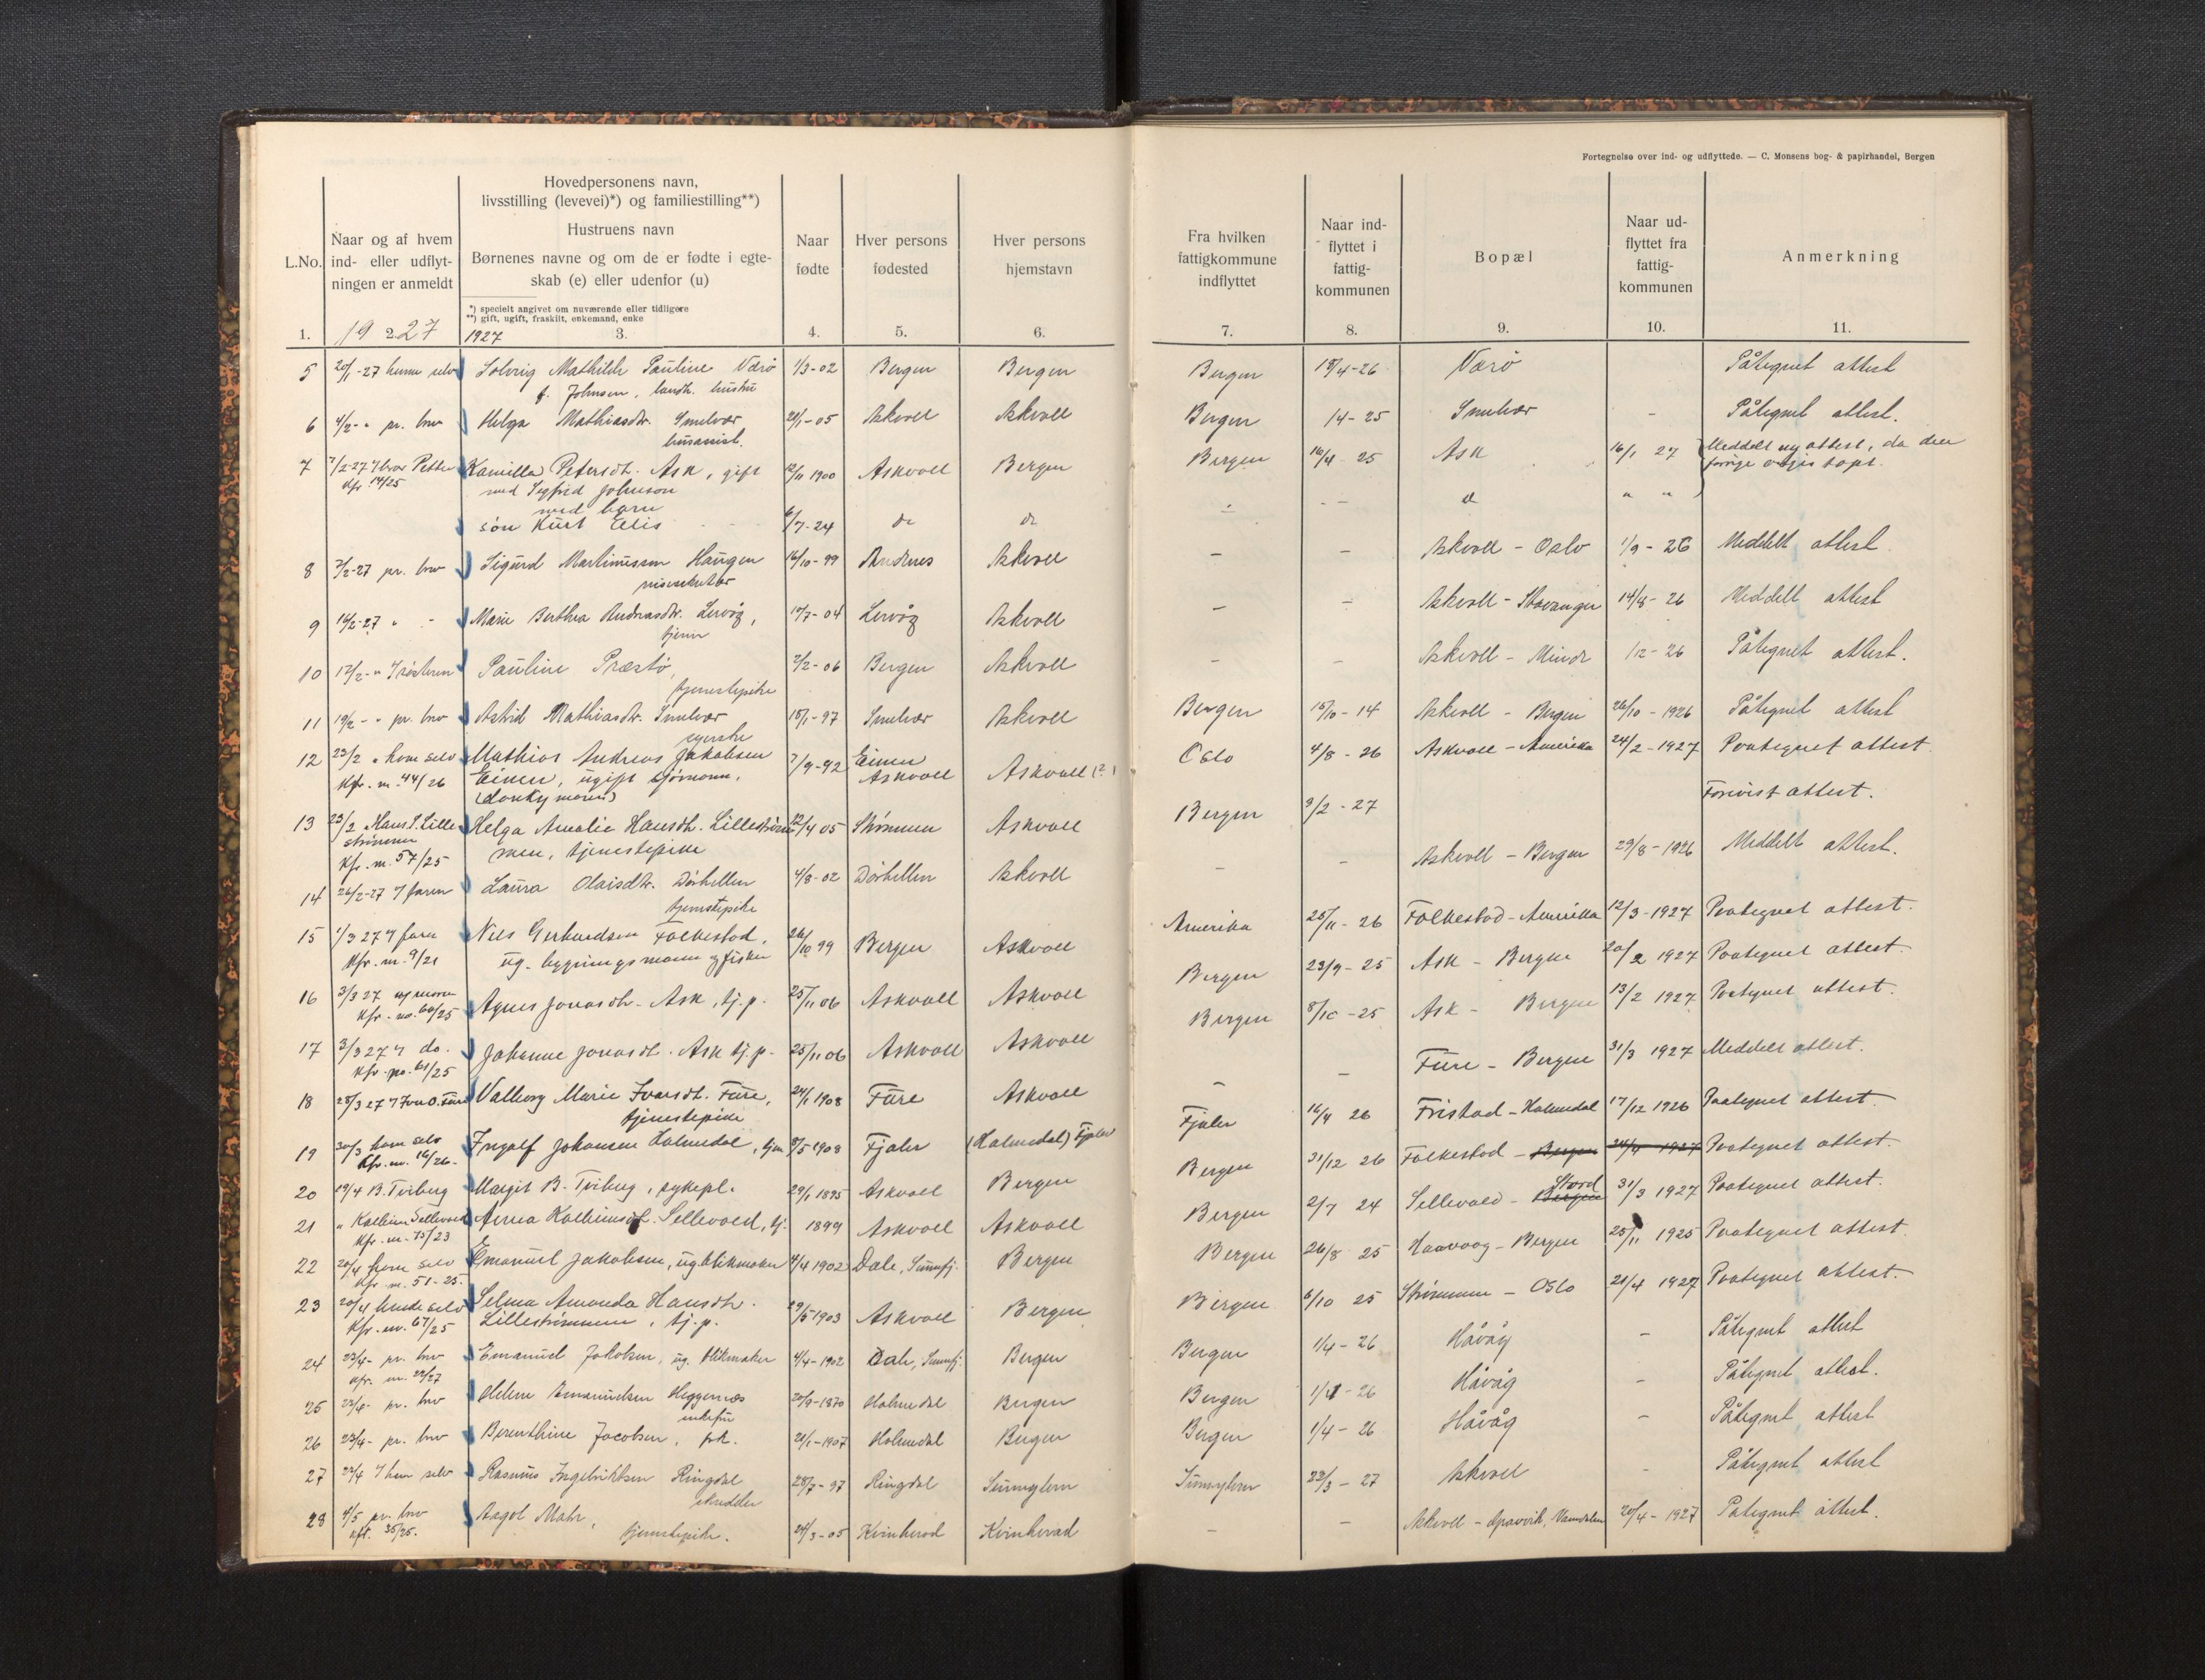 Fortegnelse over ind- og udflyttede. — C. Monsens bog- & papirhandel, Bergen
L.No.
Naar og af hvem
ind- eller udflyt-
ningen er anmeldt
Hovedpersonens navn,
livsstilling (levevei)*) og familiestilling**)
Hustruens navn
Børnenes navne og om de er fødte i egte-
skab (e) eller udenfor (u)
*) specielt angivet om nuværende eller tidligere
**) gift, ugift, fraskilt, enkemand, enke
Naar
fødte
Hver persons
fødested
Hver persons
hjemstavn
Fra hvilken
fattigkommune
indflyttet
Naar ind-
flyttet i
fattig-
kommunen
Bopæl
Naar ud-
flyttet fra
fattig-
kommunen
Anmerkning
1. 2. 3. 4. 5. 6. 7. 8. 9. 10. 11.
1927 1927
5 20/1-27 Solveig Mathilde Pauline Værø 1/3-02 Bergen Bergen Bergen 15/4-26 Værø Påtegnet attest
f. Johnsen, landh. hustru
6 4/2- " pr. brev Helga Mathiasdtr. Smelvær 21/1-05 Askvoll Askvoll Bergen 14-25 Smelvær - Påtegnet attest.
7 7/2-27 Kamilla Petersdt. Ask, gift 12/11 1900 Askvoll Bergen Bergen 16/4 25 Ask 16/1 27 Meddelt ny attest, da den
Kfr 14/25 med Sigfred Johnson forrige opgis tapt.
med barn
søn Kurt Elis 6/7-24 do do - - - d " "
8 7/2-27 pr. brev Sigurd Martinussen Haugen 16/10-99 Askvoll - - Askvoll - Oslo 1/9-26 Meddelt attest
9 14/2-27 " - Marie Berthea Andreasdtr. Lervåg, 17/7-04 Lervåg Askvoll - - Askvoll - Stavanger 14/8-26 Meddelt attest
tjener
10 17/2- " Pauline Præstø, 2/2-06 Bergen Askvoll - - Askvoll - 1/2-26 Påtegnet attest.
tjenestepike
11 19/2- " pr. brev Astrid Mathiasdtr. Smelvær 15/1-97 Smelvær Askvoll Bergen 15/10-14 Askvoll - Bergen 26/10-1926 Påtegnet attest
syerske
12 23/2 " ham selv Mathias Andreas Jakobsen 7/9-92 Einen Askvoll Askvoll (?) Oslo 4/8-26 Askvoll - Amerika 24/2-1927 Paategnet attest
Kfr. nr. 44/26 Einen, ugift sjømann,
(donkymann)
13 23/2 Hans S. Lille- Helga Amalie Hansdt. Lillestrøm- 22/4 05 Strømmen Askvoll Bergen 3/2-27 Forevist attest.
strømmen men, tjenestepike
Kfr. nr. 57/25
14 26/2-27 faren Laura Olaisdtr. Dørhellen 4/8-02 Dørhellen Askvoll - - Askvoll - Bergen 29/8-1926 Meddelt attest.
tjenestepike
15 1/3 27 faren Nils Gerhardsen Folkestad, 26/10 99 Bergen Askvoll Amerika 25/11-26 Folkestad - Amerika 12/3-1927 Paategnet attest.
Kfr. nr. 9/21 ug. bygningsmann og fisker
16 3/3 27 Agnes Jonasdt. Ask, tj.p. 25/11 06 Askvoll Askvoll Bergen 23/9-25 Ask - Bergen 20/2 1927 Paategnet attest.
Kfr. no. 60/25
17 3/3 27 do. Johanne Jonasdt. Ask tj.p. 25/11 06 Askvoll Askvoll Bergen 8/10-25 Ask - Bergen 13/2 1927 Paategnet attest.
Kfr. no. 61/25
18 28/3 27 Ivar O. Fure Valborg Marie Ivarsdt. Fure, 24/1 1908 Fure Askvoll - - Fure - Bergen 31/3 1927 Meddelt attest.
tjenestepike
19 30/3 ham selv Ingolf Johansen Holmedal, tjen 3/5 1908 Fjaler (Holmedal) Fjaler Fjaler 16/4 26 Fristad - Holmedal 17/12 1926 Paategnet attest
Kfr. nr. 16/26.
20 19/4 B. Tviberg Margit B. Tviberg, sykepl. 29/1 1895 Askvoll Bergen Bergen 31/12 26 Folkestad - Bergen 24/4 1927 Paategnet attest.
21 " Anna Sellevold, tj. 1899 Askvoll Askvoll Bergen 2/7 24 Sellevold - Bergen Stord 31/3 1927 Paategnet attest.
Kfr. nr. 75/23
22 20/4 ham selv Emanuel Jakobsen, ug. blikmaker 4/4 1902 Dale, Sunnfj. Bergen Bergen 26/8 25 Haavaag - Bergen 25/11 1925 Paategnet attest
Kfr nr. 51-25.
23 20/4 hende selv Selma Amanda Hansdtr. 29/5 1903 Askvoll Bergen Bergen 6/10 25 Strømmen - Oslo 21/4 1927 Paategnet attest.
Kfr. nr. 67/25 Lillestrømmen, tj.p.
24 23/4- pr. brev Emanuel Jakobsen, ug. blikmaker 4/4-1902 Dale, Sunnfj. Bergen Bergen 1/4-26 Håvåg - Påtegnet attest
Kfr. nr. 22/27
25 23/4- pr. brev Helene Emanuelsen Heggernes 20/9-1870 Holmedal Bergen Bergen 1/4-26 Håvåg - Påtegnet attest.
enkefru
26 23/4- pr. brev Berenthine Jacobsen, 21/1-1907 Holmedal Bergen Bergen 1/4-26 Håvåg - Påtegnet attest
27 22/4 han selv Rasmus Ingebriktsen Ringdal 28/7-97 Ringdal Sunnylven Sunnylven 22/3-27 Askvoll - Påtegnet attest
skredder
28 4/5 pr. brev Aagot Mahr, 24/3-05 Kvinherad Kvinherad - - Askvoll - 20/4-1927 Påtegnet attest.
Kfr. 35/25. tjenestepike.